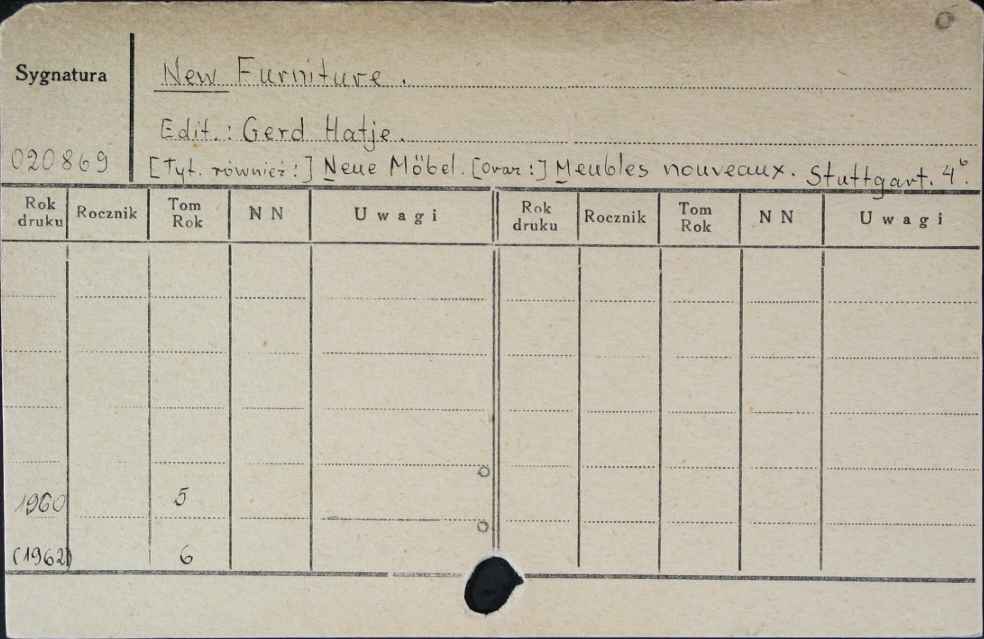 Sygnatura
New Furniture.
Edit.: Gerd Hatje.
020869
[Tyt. również:] Neue Möbel. [oraz:] Meubles nouveaux. Stuttgart. 4º.
Rok druku Rocznik Tom Rok NN Uwagi Rok druku Rocznik Tom Rok NN Uwagi
1960 5
(1962) 6